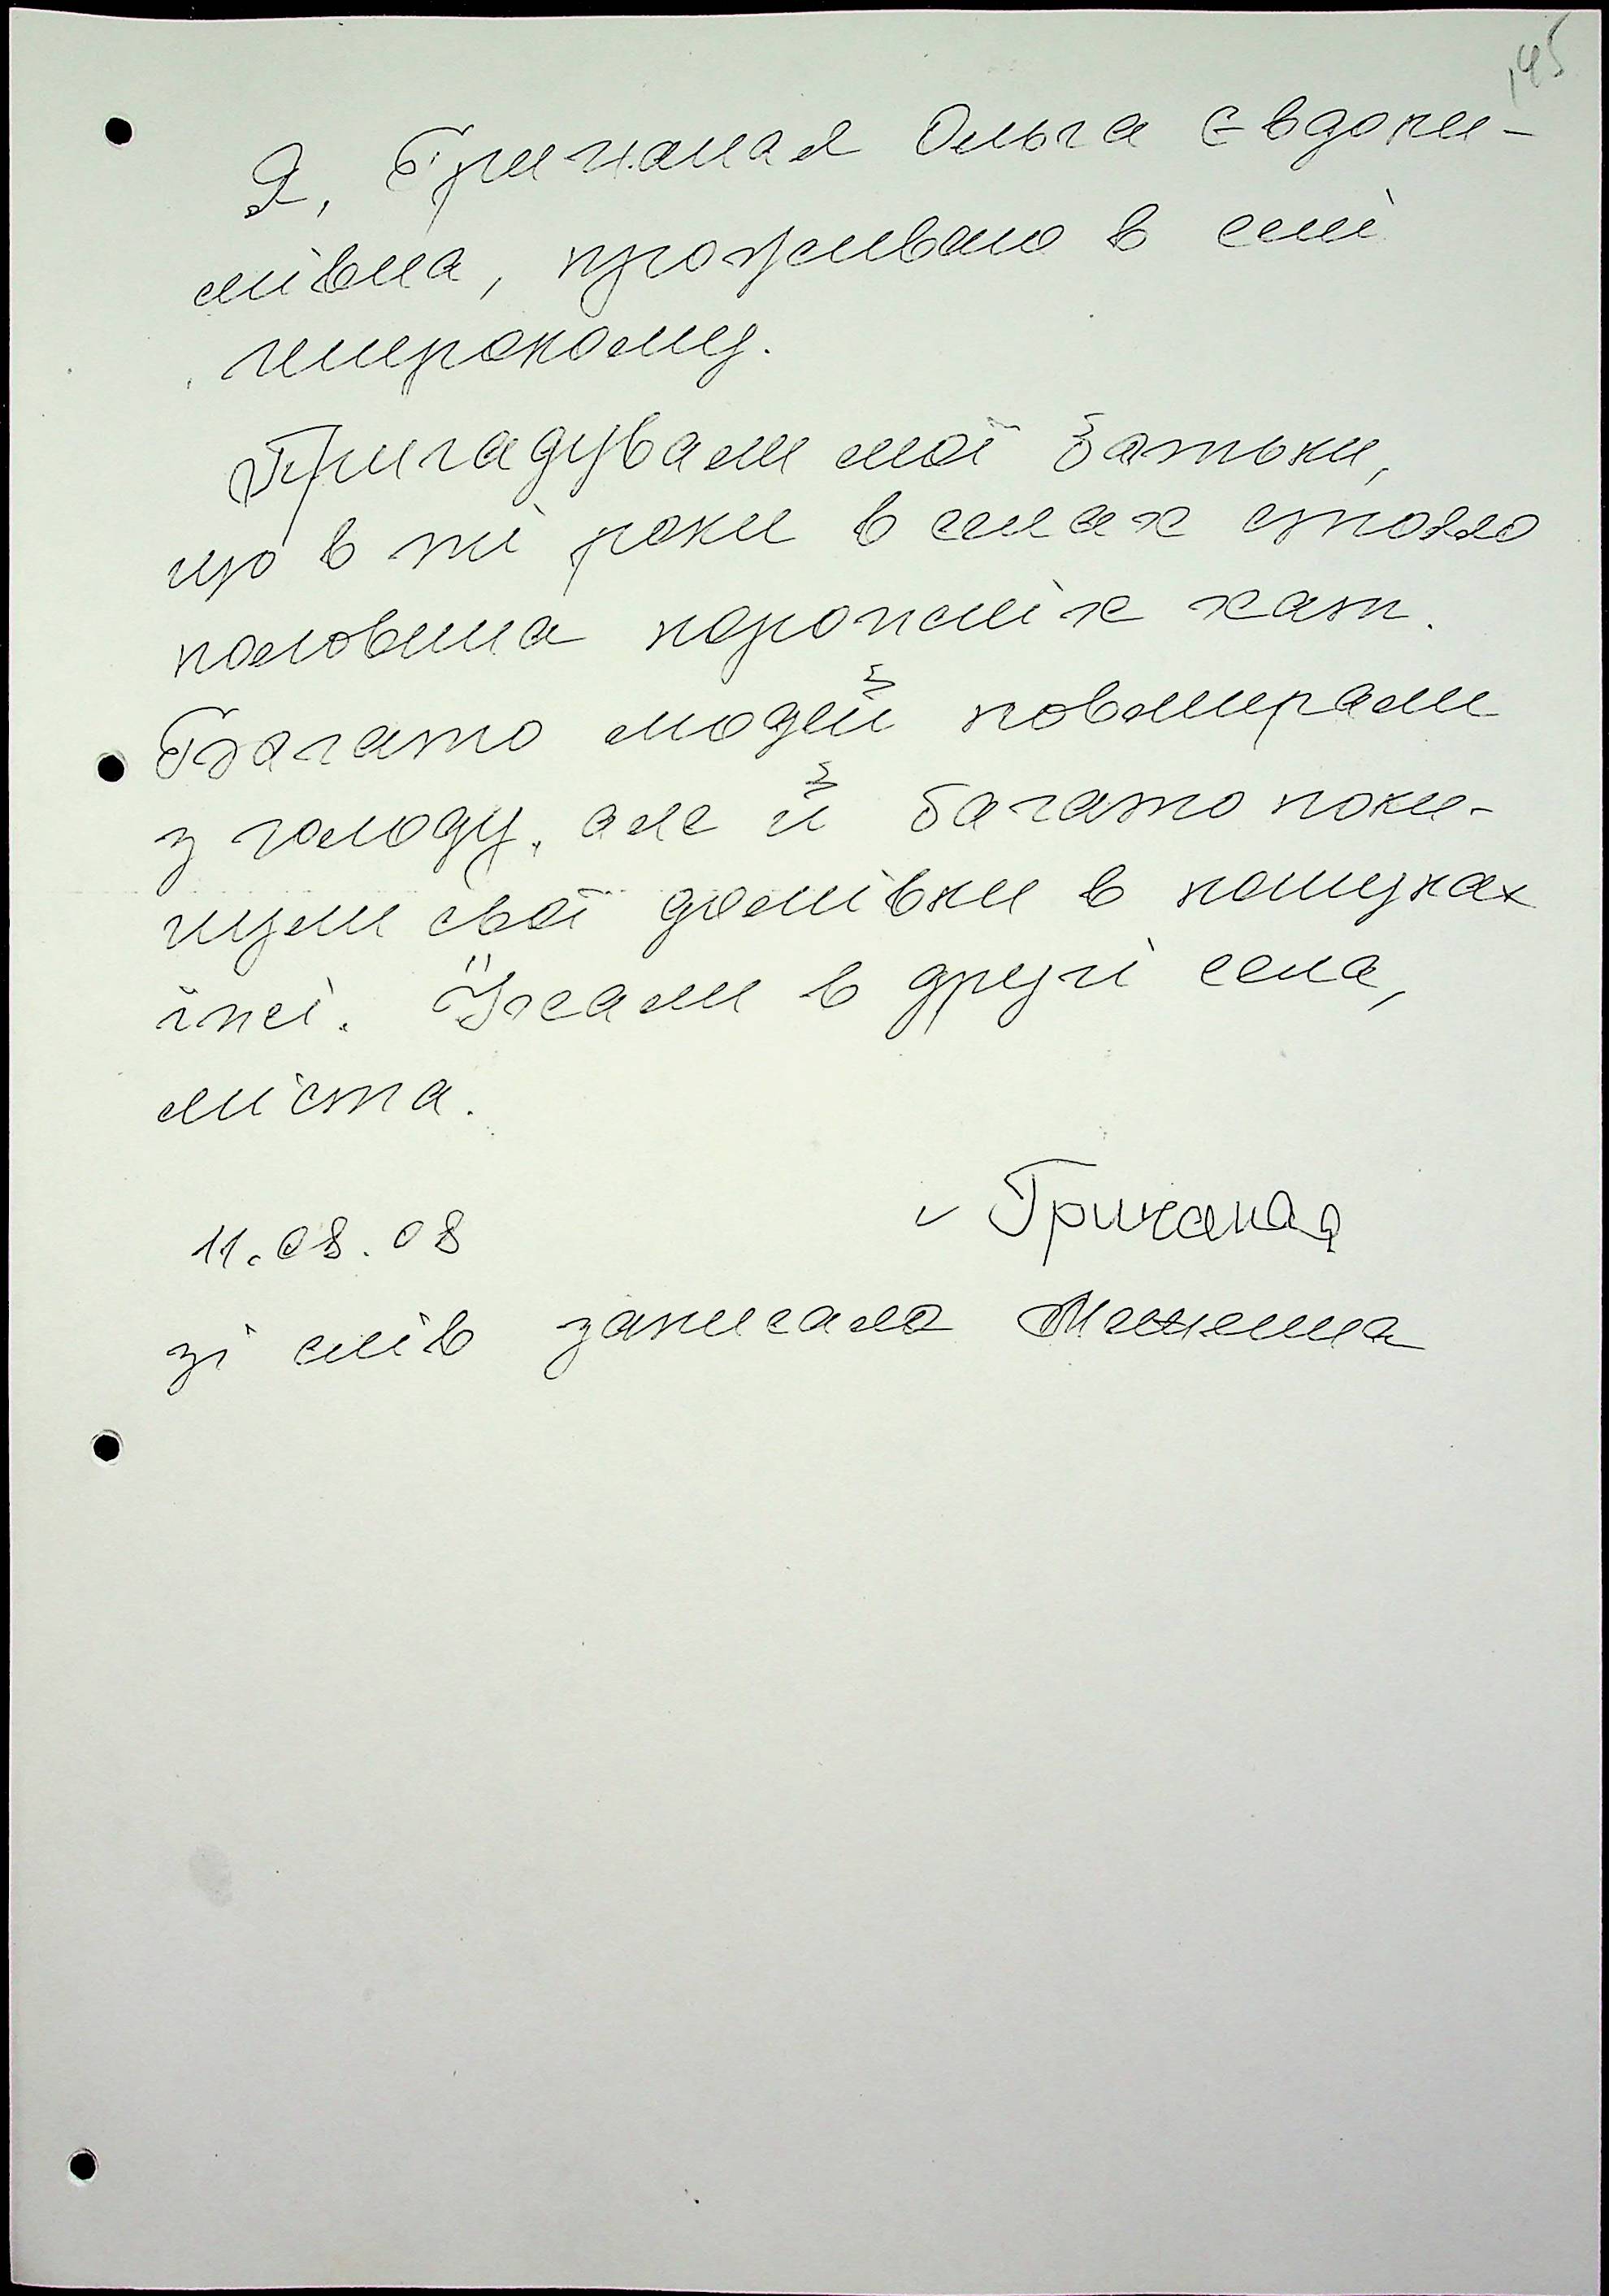 145
Я, Гричаная Ольга Євдоки-
мівна, проживаю в селі
Широкому.
Пригадували мої батьки,
що в ті роки в селах стояло
половина порожніх хат.
Багато людей повмирали
з голоду, але й багато поки-
щули свої домівки в пошуках
їжі. Їхали в другі села,
міста.
Гричаная
11.08.08
зі слів записала